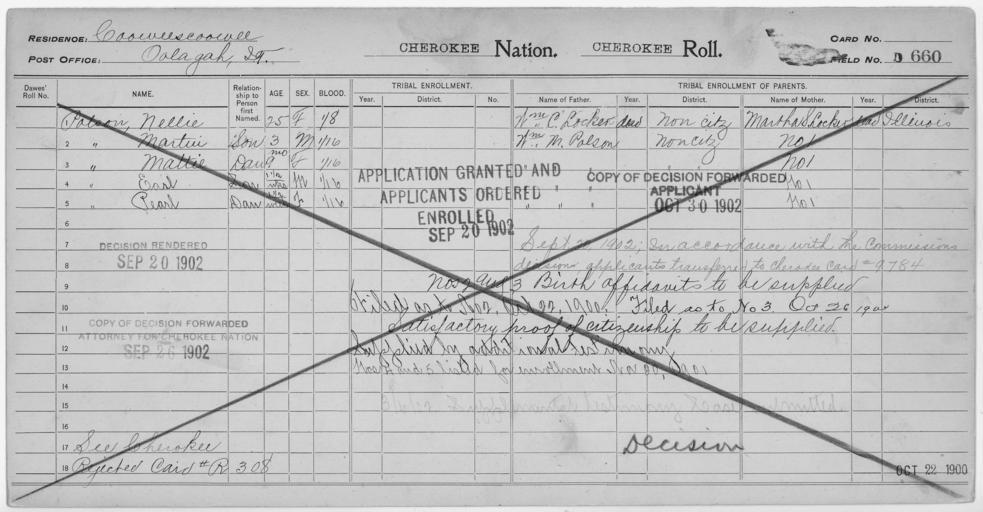 RESIDENCE: Coowescoowee
POST OFFICE: Oolagah, I.T.
CHEROKEE Nation. CHEROKEE Roll.
CARD NO.
FIELD NO. D 660
Dawes' Roll No. NAME. Relationship to Person first Named. AGE SEX. BLOOD. TRIBAL ENROLLMENT. Year. District. No. TRIBAL ENROLLMENT OF PARENTS. Name of Father. Year. District. Name of Mother. Year. District.
Polson, Nellie 25 F 1/8 Wm C. Locker dead Non citz Martha Locker dead Illinois
2 " Martin Son 3 M 1/16 Wm M. Polson Non citz No 1
3 " Mattie Dau 9 mo F 1/16 " " " No 1
4 " Earl Son M 1/16 " " " No 1
5 " Pearl Dau F 1/16 " " " No 1
APPLICATION GRANTED AND APPLICANTS ORDERED ENROLLED
SEP 20 1902
COPY OF DECISION FORWARDED
APPLICANT
OCT 30 1902
6
7 Sept 20, 1902; In accordance with the Commissions
8 decision applicants transferred to Cherokee Card # 9784
DECISION RENDERED
SEP 20 1902
9 Nos 2 and 3 Birth affidavits to be supplied
10 Filed as to No 2, Oct 22, 1900. Filed as to No 3. Oct 26 1900
11 Satisfactory proof of citizenship to be supplied.
COPY OF DECISION FORWARDED
ATTORNEY FOR CHEROKEE NATION
SEP 26 1902
12 Supplied by additional testimony
13 Nos 4 and 5 listed for enrollment Nov 20, 1901
14
15
16
DECISION
17 See Cherokee
18 Rejected Card # R 308
OCT 22 1900